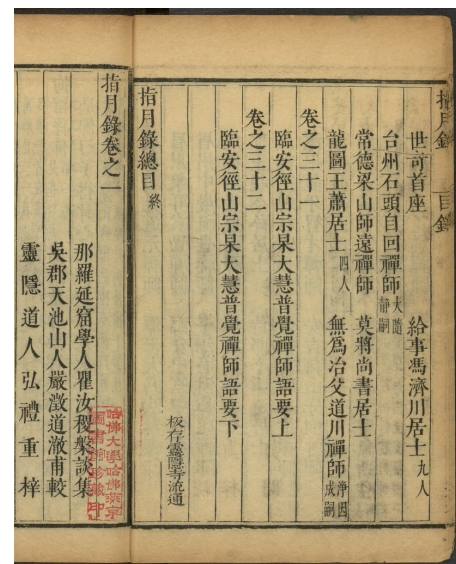 指月錄 目錄
世奇首座 給事馮濟川居士九人
台州石頭自回禪師大隨靜嗣
常德梁山師遠禪師 莫將尚書居士
龍圖王蕭居士四人 無爲冶父道川禪師淨因成嗣
卷之三十一
臨安徑山宗杲大慧普覺禪師語要上
卷之三十二
臨安徑山宗杲大慧普覺禪師語要下
板存靈隱寺流通
指月錄總目終
指月錄卷之一
那羅延窟學人瞿汝稷槃談集
吳郡天池山人嚴澂道澈甫較
靈隱道人弘禮重梓
哈佛大學哈佛燕京圖書館珍藏印